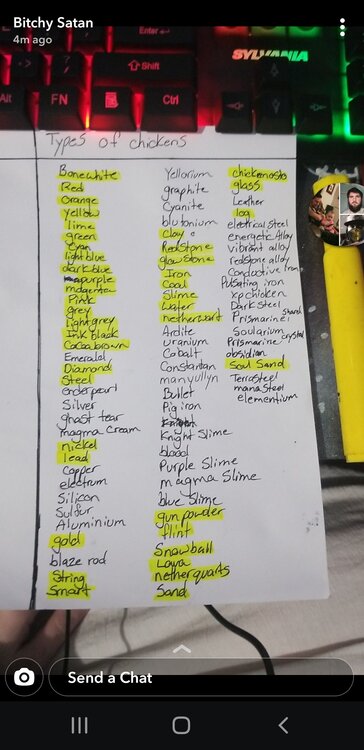 Bitchy Satan
4m ago
Enter
SYLVANIA
Shift
Alt
FN
Ctrl
Types of chickens
Bonewhite
Red
Orange
yellow
lime
green
cyan
light blue
dark blue
purple
magenta
Pink
grey
light grey
Ink black
Cocoa brown
Emerald
Diamond
Steel
enderpearl
Silver
ghast tear
magma cream
nickel
lead
Copper
electrum
Silicon
Sulfur
Aluminium
gold
blaze rod
String
Smart
Yellorium
graphite
Cyanite
blutonium
clay
Redstone
glowstone
Iron
Coal
Slime
Water
netherwart
Ardite
uranium
Cobalt
Constantan
manyullyn
Bullet
Pig iron
Knight Slime
blood
Purple Slime
magma Slime
blue Slime
gunpowder
flint
Snowball
Lava
netherquarts
Sand
glass
Leather
log
electrical steel
energetic Alloy
vibrant alloy
redstone alloy
Conductive Iron
Pulsating iron
xp chicken
Dark Steel
Prismarine shard
Soularium
Prismarine crystal
obsidian
Soul Sand
Terrasteel
mana Steel
elementium
Send a Chat